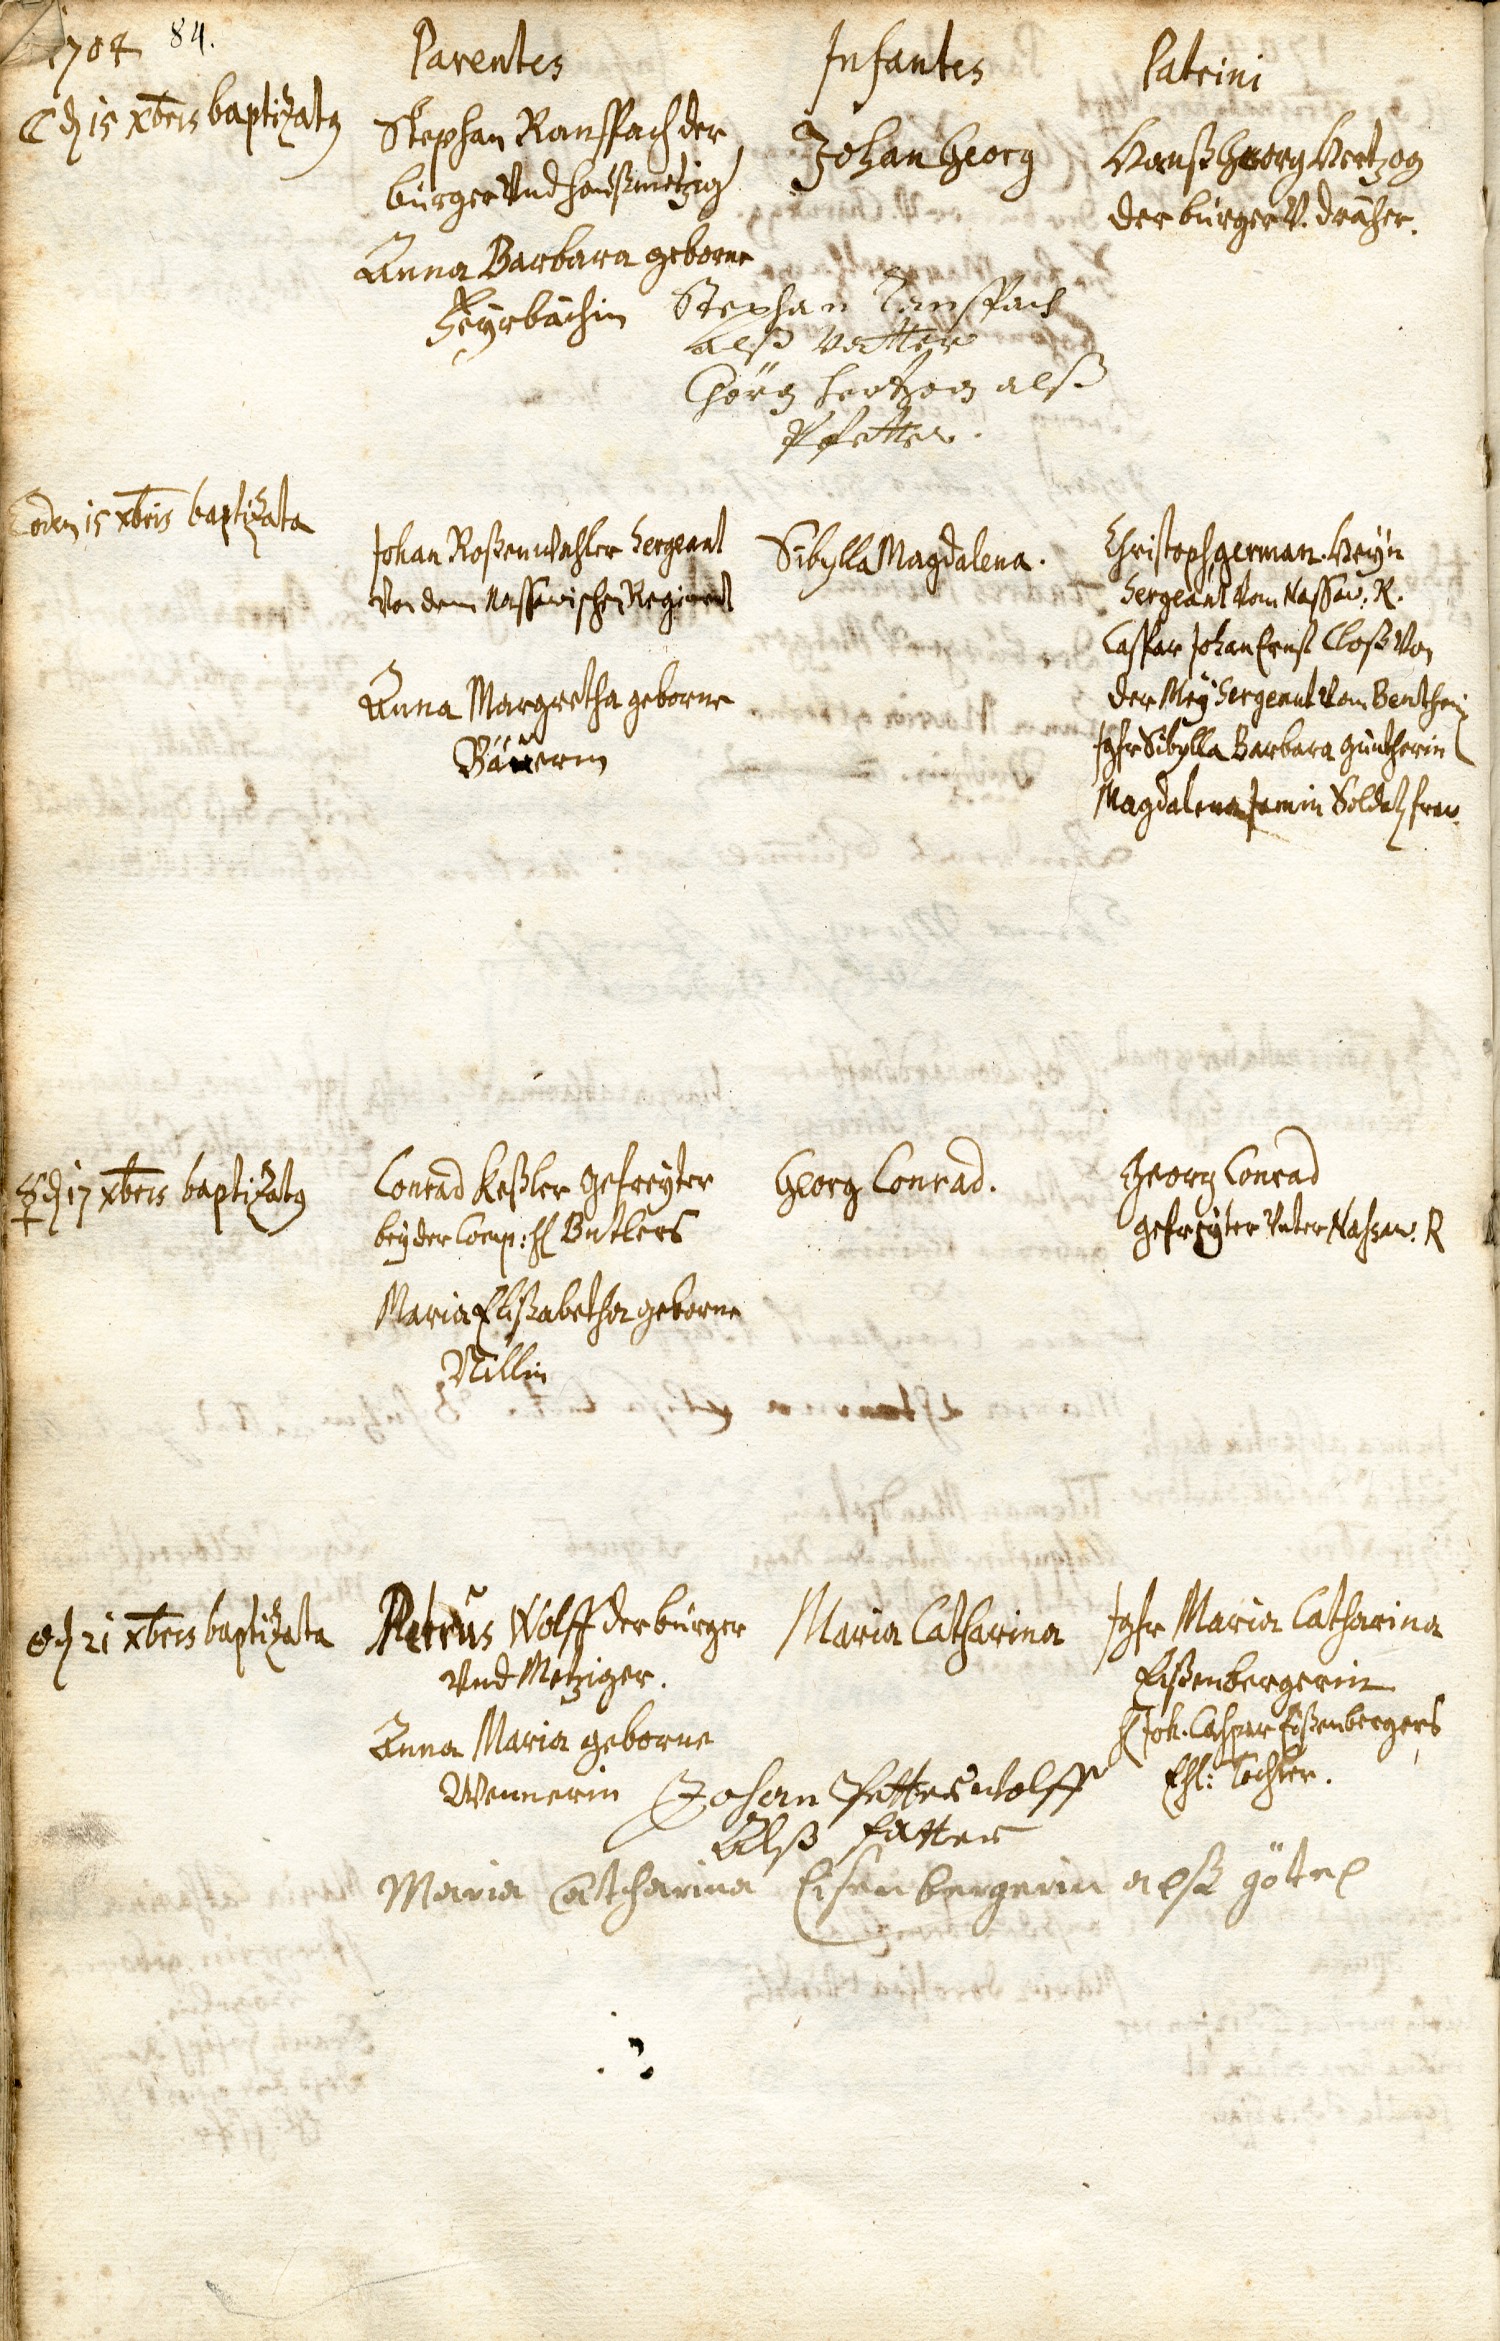 1704 84.
Parentes
Infantes
Patrini
☾ d 15 Xbris baptizatꝫ
Stephan Ranspach der
burger Vnd haußmetzig
Anna Barbara geborne
Heyrbächin
Johan Georg
Hanß Georg Hertzog
der burger V. dräher.
Stephan Ranspach
alß vatter
Görg hertzog alß
Pfetter.
Eodem 15 xbris baptizata
Johan Roßenwahler Sergeant
Von dem Nassawischen Regiment
Anna Margretha geborne
Bäuerin
Sibylla Magdalena.
Christoph german Heyn
Sergeant Vom Nassaw: R.
Caspar Johan Ernst Cloß Von
der Mey Sergeant Vom Benthei
Jgfr Sibylla Barbara güntherin
Magdalena Soldatz fraw
☿ d 17 xbris baptizatꝫ
Conrad Keßler gefreyter
bey der Comp: H Butlers
Maria Elißabetha geborne
Nillin
Georg Conrad.
Georg Conrad
gefreyter Vnter Nassaw. R
d 21 xbris baptizata
Petrus Wolff der burger
Vnd Metziger.
Anna Maria geborne
Wennerin
Maria Catharina
Jgfr Maria Catharina
Eißenbergerin
H Joh. Caspar Eißenbergers
Ehl: Tochter.
Johan Petter wolff
Alß fatter
Maria Catharina Eisenbergerin alß götel